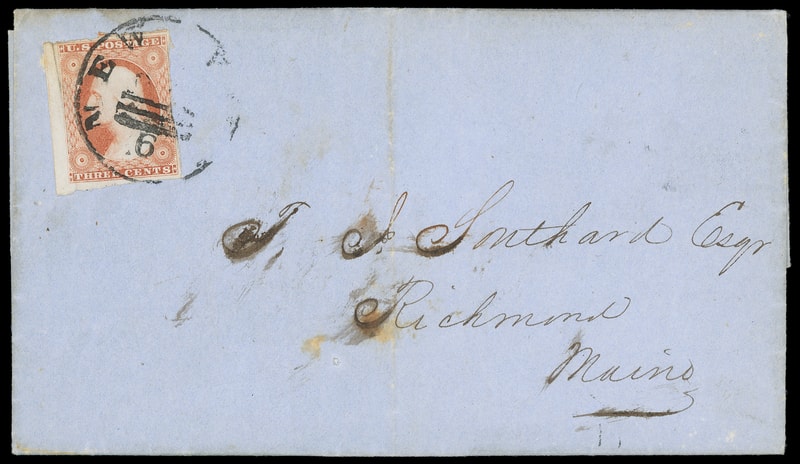 U.S. POSTAGE
THREE CENTS
NEW Y
6
T J Southard Esqr
Richmond
Maine